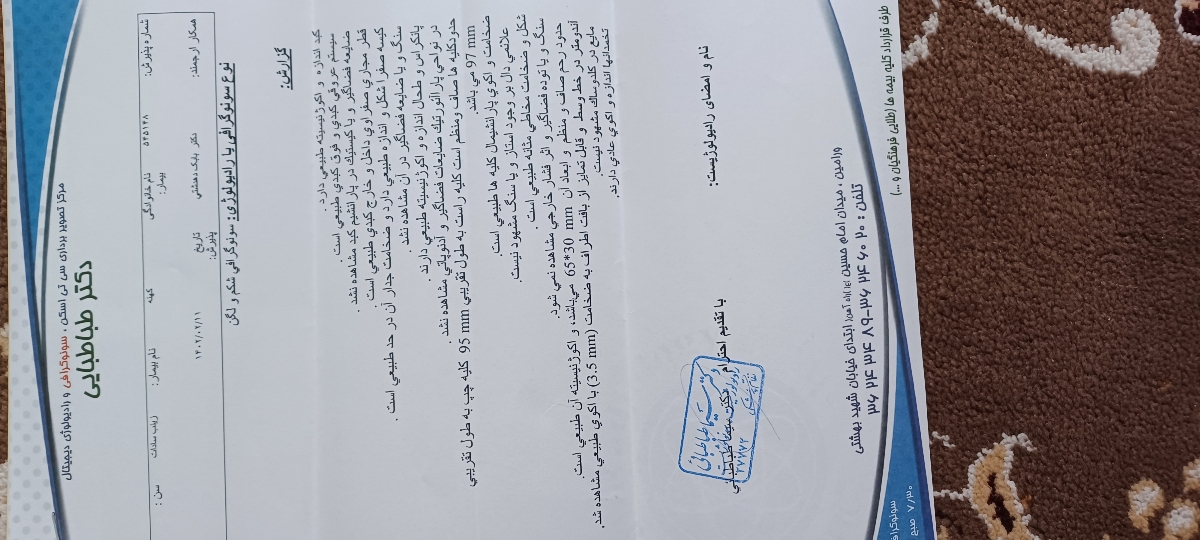 مرکز تصویر برداری سی تی اسکن ، سونوگرافی و رادیولوژی دیجیتال
دکتر طباطبایی
شماره پذیرش: ۵۴۵۱۴۸ نام خانوادگی بیمار: کهنه نام بیمار: زینب سادات سن :
همکار ارجمند: دکتر بابک دهشتی تاریخ پذیرش: ۱۴۰۲/۰۲/۱۱
نوع سونوگرافی یا رادیولوژی: سونوگرافي شکم و لگن
گزارش:
کبد اندازه و اکوژنیسیته طبیعي دارد.
سیستم عروقي کبدي و فوق کبدي طبیعي است.
ضایعه فضاگیر و یا کیستیك در پارانشیم کبد مشاهده نشد.
قطر مجاري صفراوي داخل و خارج کبدي طبیعي است.
کیسه صفرا شکل و اندازه طبیعي دارد و ضخامت جدار آن در حد طبیعي است.
سنگ و یا ضایعه فضاگیر در آن مشاهده نشد.
پانکراس و طحال اندازه و اکوژنیسیته طبیعي دارند.
در نواحي پارائورتیك ضایعات فضاگیر و آدنوپاتي مشاهده نشد.
حدودکلیه ها صاف ومنظم است کلیه راست به طول تقریبي 95 mm کلیه چپ به طول تقریبي
97 mm مي باشد.
ضخامت و اکوي پارانشیمال کلیه ها طبیعي است.
علائمي دال بر وجود استاز و یا سنگ مشهود نیست.
شکل و ضخامت مخاطي مثانه طبیعي است.
سنگ و یا توده فضاگیر و اثر فشار خارجي مشاهده نمي شود.
حدود رحم صاف و منظم و ابعاد آن 65*30 mm مي‌باشد، و اکوژنیسیته آن طبیعي است.
آندومتر در خط وسط و قابل تمایز از بافت اطراف به ضخامت (3.5 mm) با اکوي طبیعي مشاهده شد.
مایع در کلدوساك مشهود نیست.
تخمدانها اندازه و اکوي عادي دارند.
با تقدیم احترام
نام و امضای رادیولوژیست:
دکتر سیما طباطبایی
۲۷۷۷۲
ورامین ، میدان امام حسین ابتدای خیابان شهید بهشتی
طرف قرارداد کلیه بیمه ها (طلایی فرهنگیان و ...)